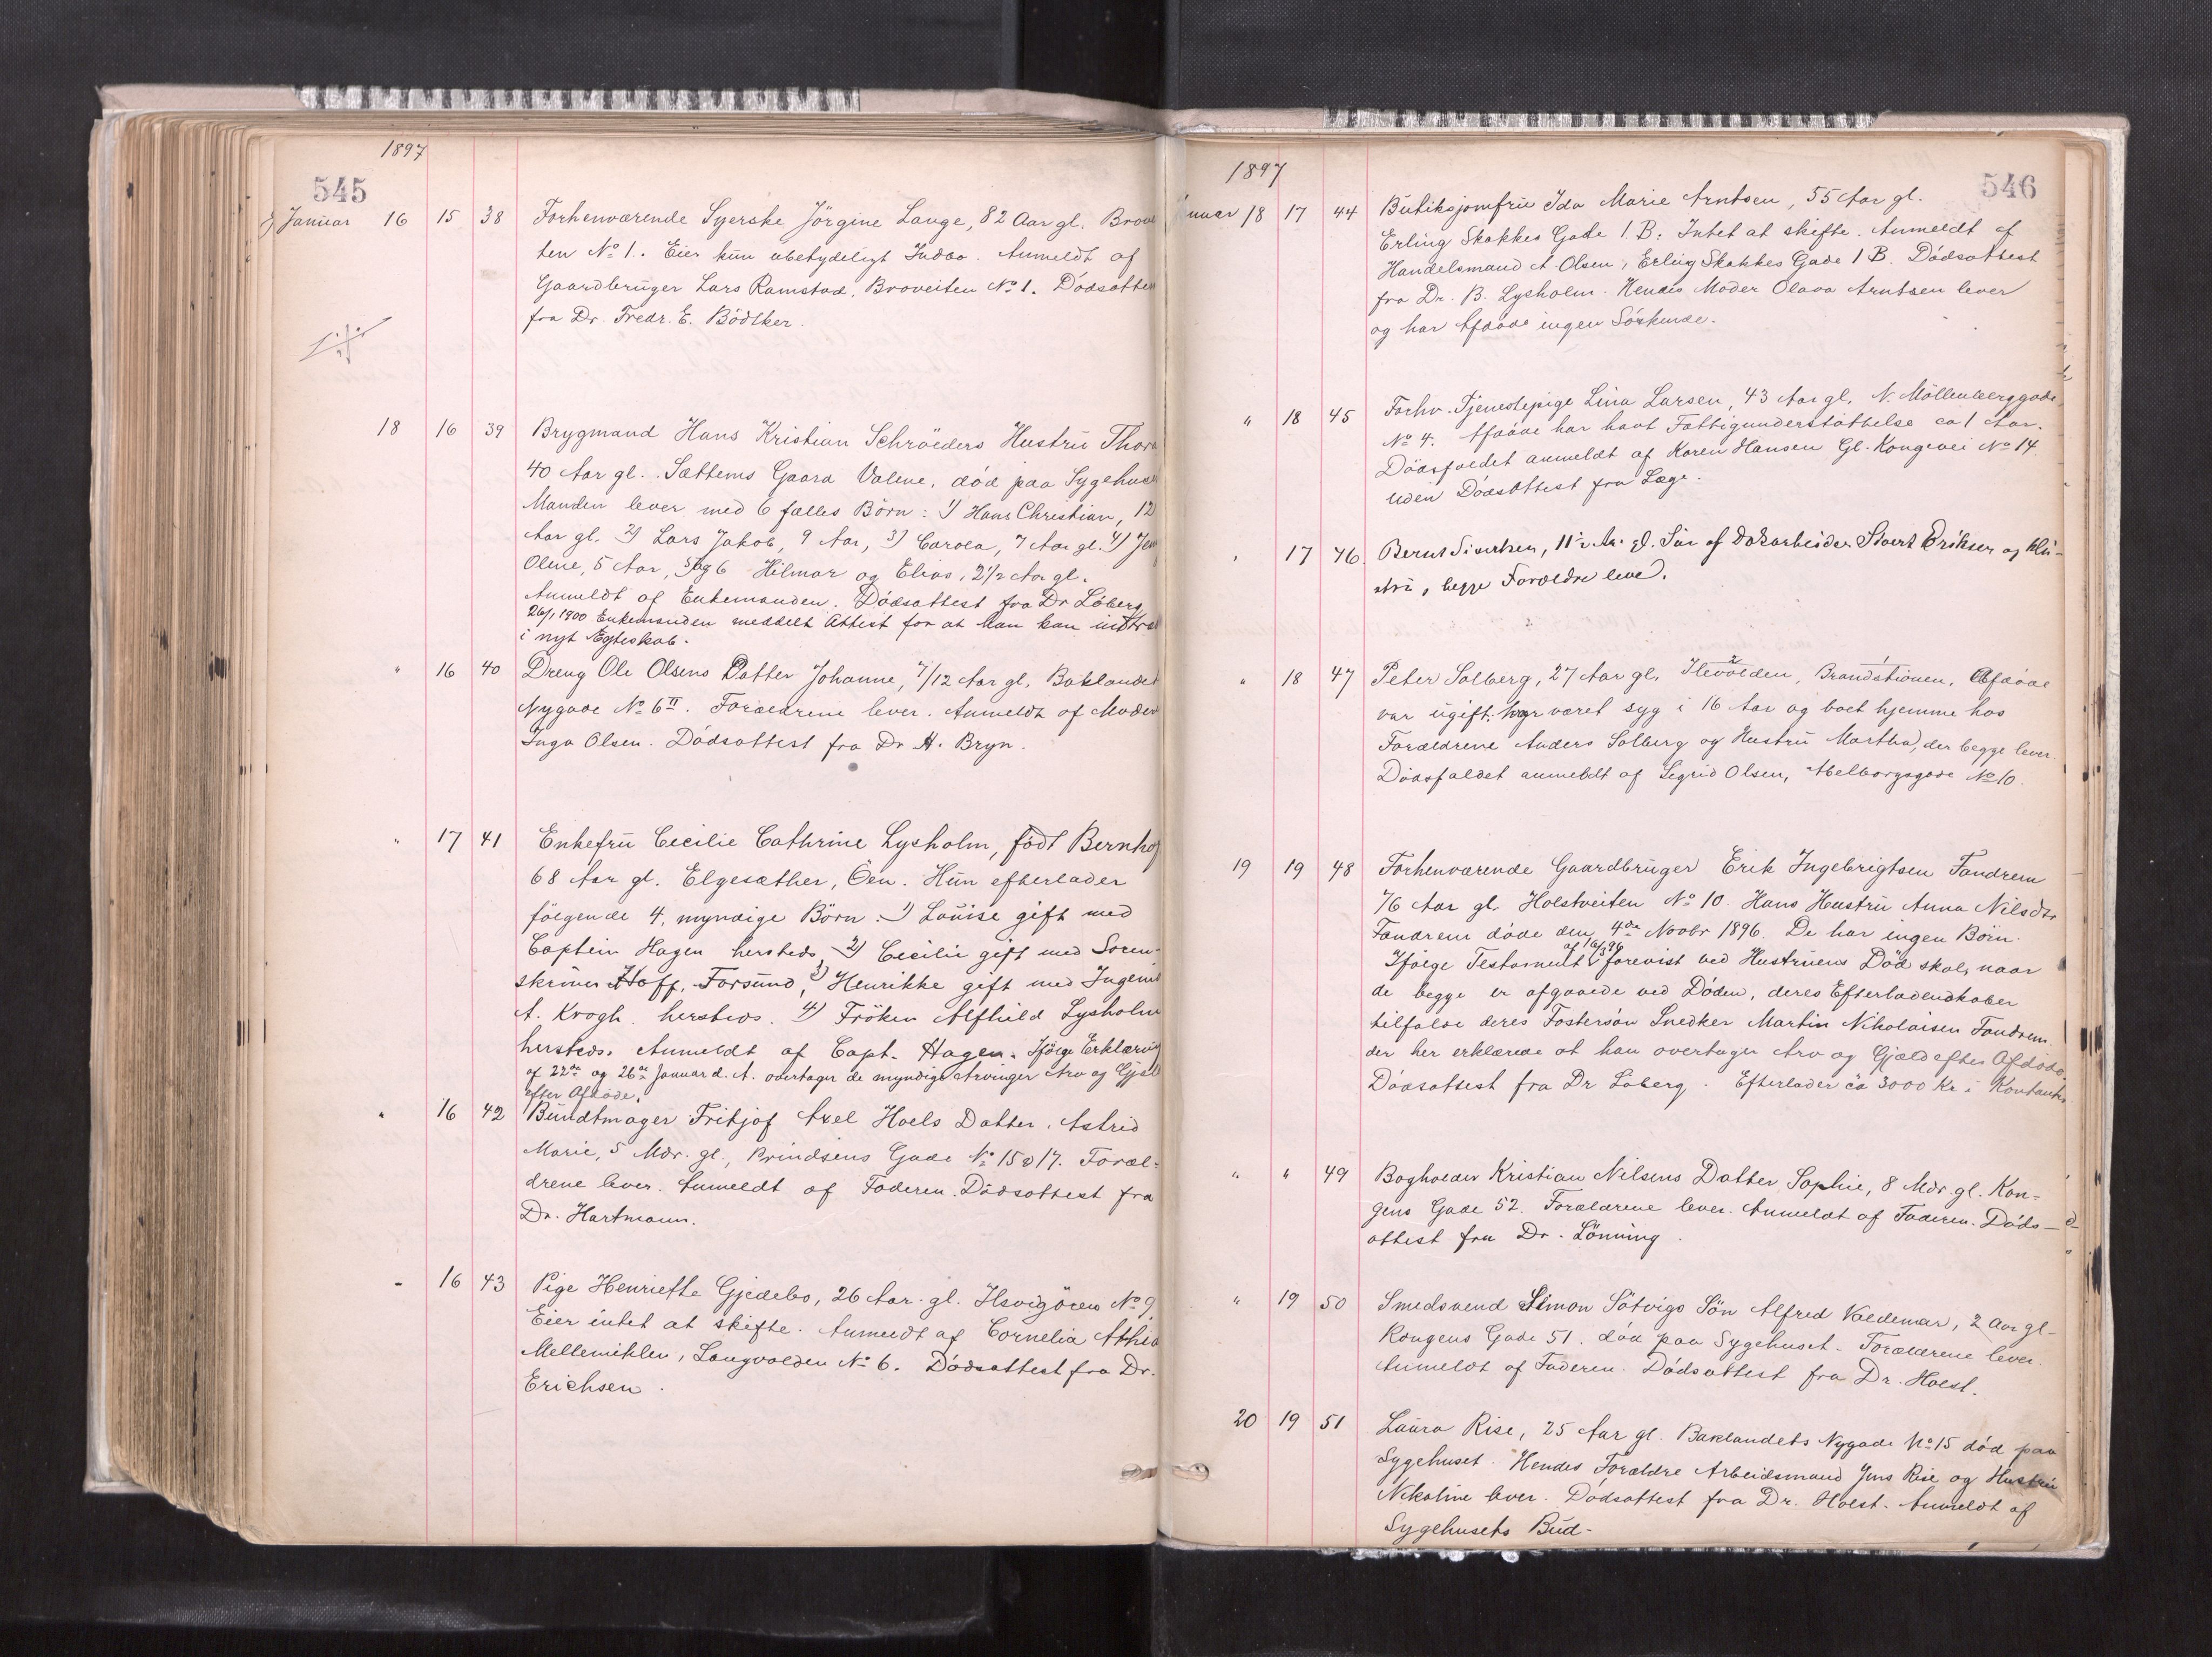 1897
545
Januar 16 15 38 Forhenværende Syerske Jörgine Lange, 82 Aar gl. Brovei
ten No 1. Eier kun ubetydeligt Indbo. Anmeldt af
Gaardbruger Lars Ramstad, Broveiten No 1. Dödsattest
fra Dr. Fredr. E. Bödtker.
18 16 39 Brygmand Hans Kristian Schröeders Hustru Thora
40 Aar gl. Sættems Gaard Valene, död paa Sygehuset
Manden lever med 6 fælles Börn: 1) Hans Christian, 12
Aar gl. 2) Lars Jakob, 9 Aar, 3) Carola, 7 Aar gl. 4)
Oline, 5 Aar, 5 og 6 Hilmar og Elias, 2 1/2 Aar gl.
Anmeldt af Enkemanden. Dödsattest fra Dr Löberg
26/1 1900 Enkemanden meddelt Attest for at han kan indtræ
i nyt Ægteskab.
" 16 40 Dreng Ole Olsens Datter Johanne, 7/12 Aar gl. Baklandet
Nygade No 6 II. Forældrene lever. Anmeldt af Moder
Inga Olsen. Dödsattest fra Dr. H. Bryn.
" 17 41 Enkefru Cecilie Cathrine Lysholm, födt Bernho
68 Aar gl. Elgesæther, Öen. Hun efterlader
fölgende 4, myndige Börn: 1) Louise gift med
Captein Hagen hersteds, 2) Cecilie gift med Soren-
skriver Hoff, Forsund, 3) Henrikke gift med Ingeniö
A. Krogh hersteds. 4) Fröken Alfhild Lysholm
hersteds. Anmeldt af Capt. Hagen. Ifölge Erklæring
af 22de og 26de Januar d. A. overtager de myndige Arvinger Arv og Gjæld
efter Afdöde.
" 16 42 Bundtmager Fritjof Axel Hoels Datter, Astrid
Marie, 5 Mdr. gl., Prindsens Gade No 15 & 17. Foræl-
drene lever. Anmeldt af Faderen. Dödsattest fra
Dr. Hartmann.
" 16 43 Pige Henriette Gjedebo, 26 Aar gl. Ilsvigören No 9
Eier intet at skifte. Anmeldt af Cornelia
Langvolden No 6. Dödsattest fra Dr.
Erichsen.
1897
546
nuar 18 17 44 Butiksjomfru Ida Marie Arntsen, 55 Aar gl.
Erling Skakkes Gade 1 B. Intet at skifte. Anmeldt af
Handelsmand A. Olsen, Erling Skakkes Gade 1 B. Dödsattest
fra Dr. B. Lysholm. Hendes Moder Olava Arntsen lever
og har Afdöde ingen Söskende.
" 18 45 Forhv. Tjenestepige Lina Larsen, 43 Aar gl. N. Möllenberggade
No 4. Afdöde har havt Fattigunderstöttelse ca 1 Aar.
Dödsfaldet anmeldt af Karen Hansen Gl. Kongevei No 14.
uden Dödsattest fra Læge.
" 17 46. Bernt Sivertsen, 11 1/2 Ar. gl. Sön af Dokarbeider Sivert Eriksen og Hu-
stru, begge Forældre leve.
" 18 47 Peter Solberg, 27 Aar gl. Ilevolden, Brandstionen. Afdöde
var ugift. har været syg i 16 Aar og boet hjemme hos
Forældrene Anders Solberg og Hustru Martha, der begge lever.
Dödsfaldet anmeldt af Sigrid Olsen, Abelborgsgade No 10.
19 19 48 Forhenværende Gaardbruger Erik Ingebrigtsen Tandrem
76 Aar gl. Holstveiten No 10. Hans Hustru Anna Nilsdtr
Tandrem döde den 4de Novbr 1896. De har ingen Börn.
Ifölge Testament af 16/3 96 forevist ved Hustruens Död skal, naar
de begge er afgaaede ved Döden, deres Efterladenskaber
tilfalde deres Fostersön Snedker Martin Nikolaisen Tandrem.
der her erklærede at han overtager Arv og Gjæld efter Afdöde.
Dödsattest fra Dr Löberg. Efterlader ca 3000 Kr. i Kontanter
" " 49 Bogholder Kristian Nilsens Datter Sophie, 8 Mdr. gl. Kon-
gens Gade 52. Forældrene lever. Anmeldt af Faderen. Döds-
attest fra Dr. Lönning.
" 19 50 Smedsvend Simon Sötvigs Sön Alfred Valdemar, 2 Aar gl.
Kongens Gade 51. död paa Sygehuset. Forældrene lever.
Anmeldt af Faderen. Dödsattest fra Dr. Holst.
20 19 51 Laura Rise, 25 Aar gl. Baklandets Nygade No 15 död paa
Sygehuset. Hendes Forældre Arbeidsmand Jens Rise og Hustru
Nikoline lever. Dödsattest fra Dr. Holst. Anmeldt af
Sygehusets Bud.